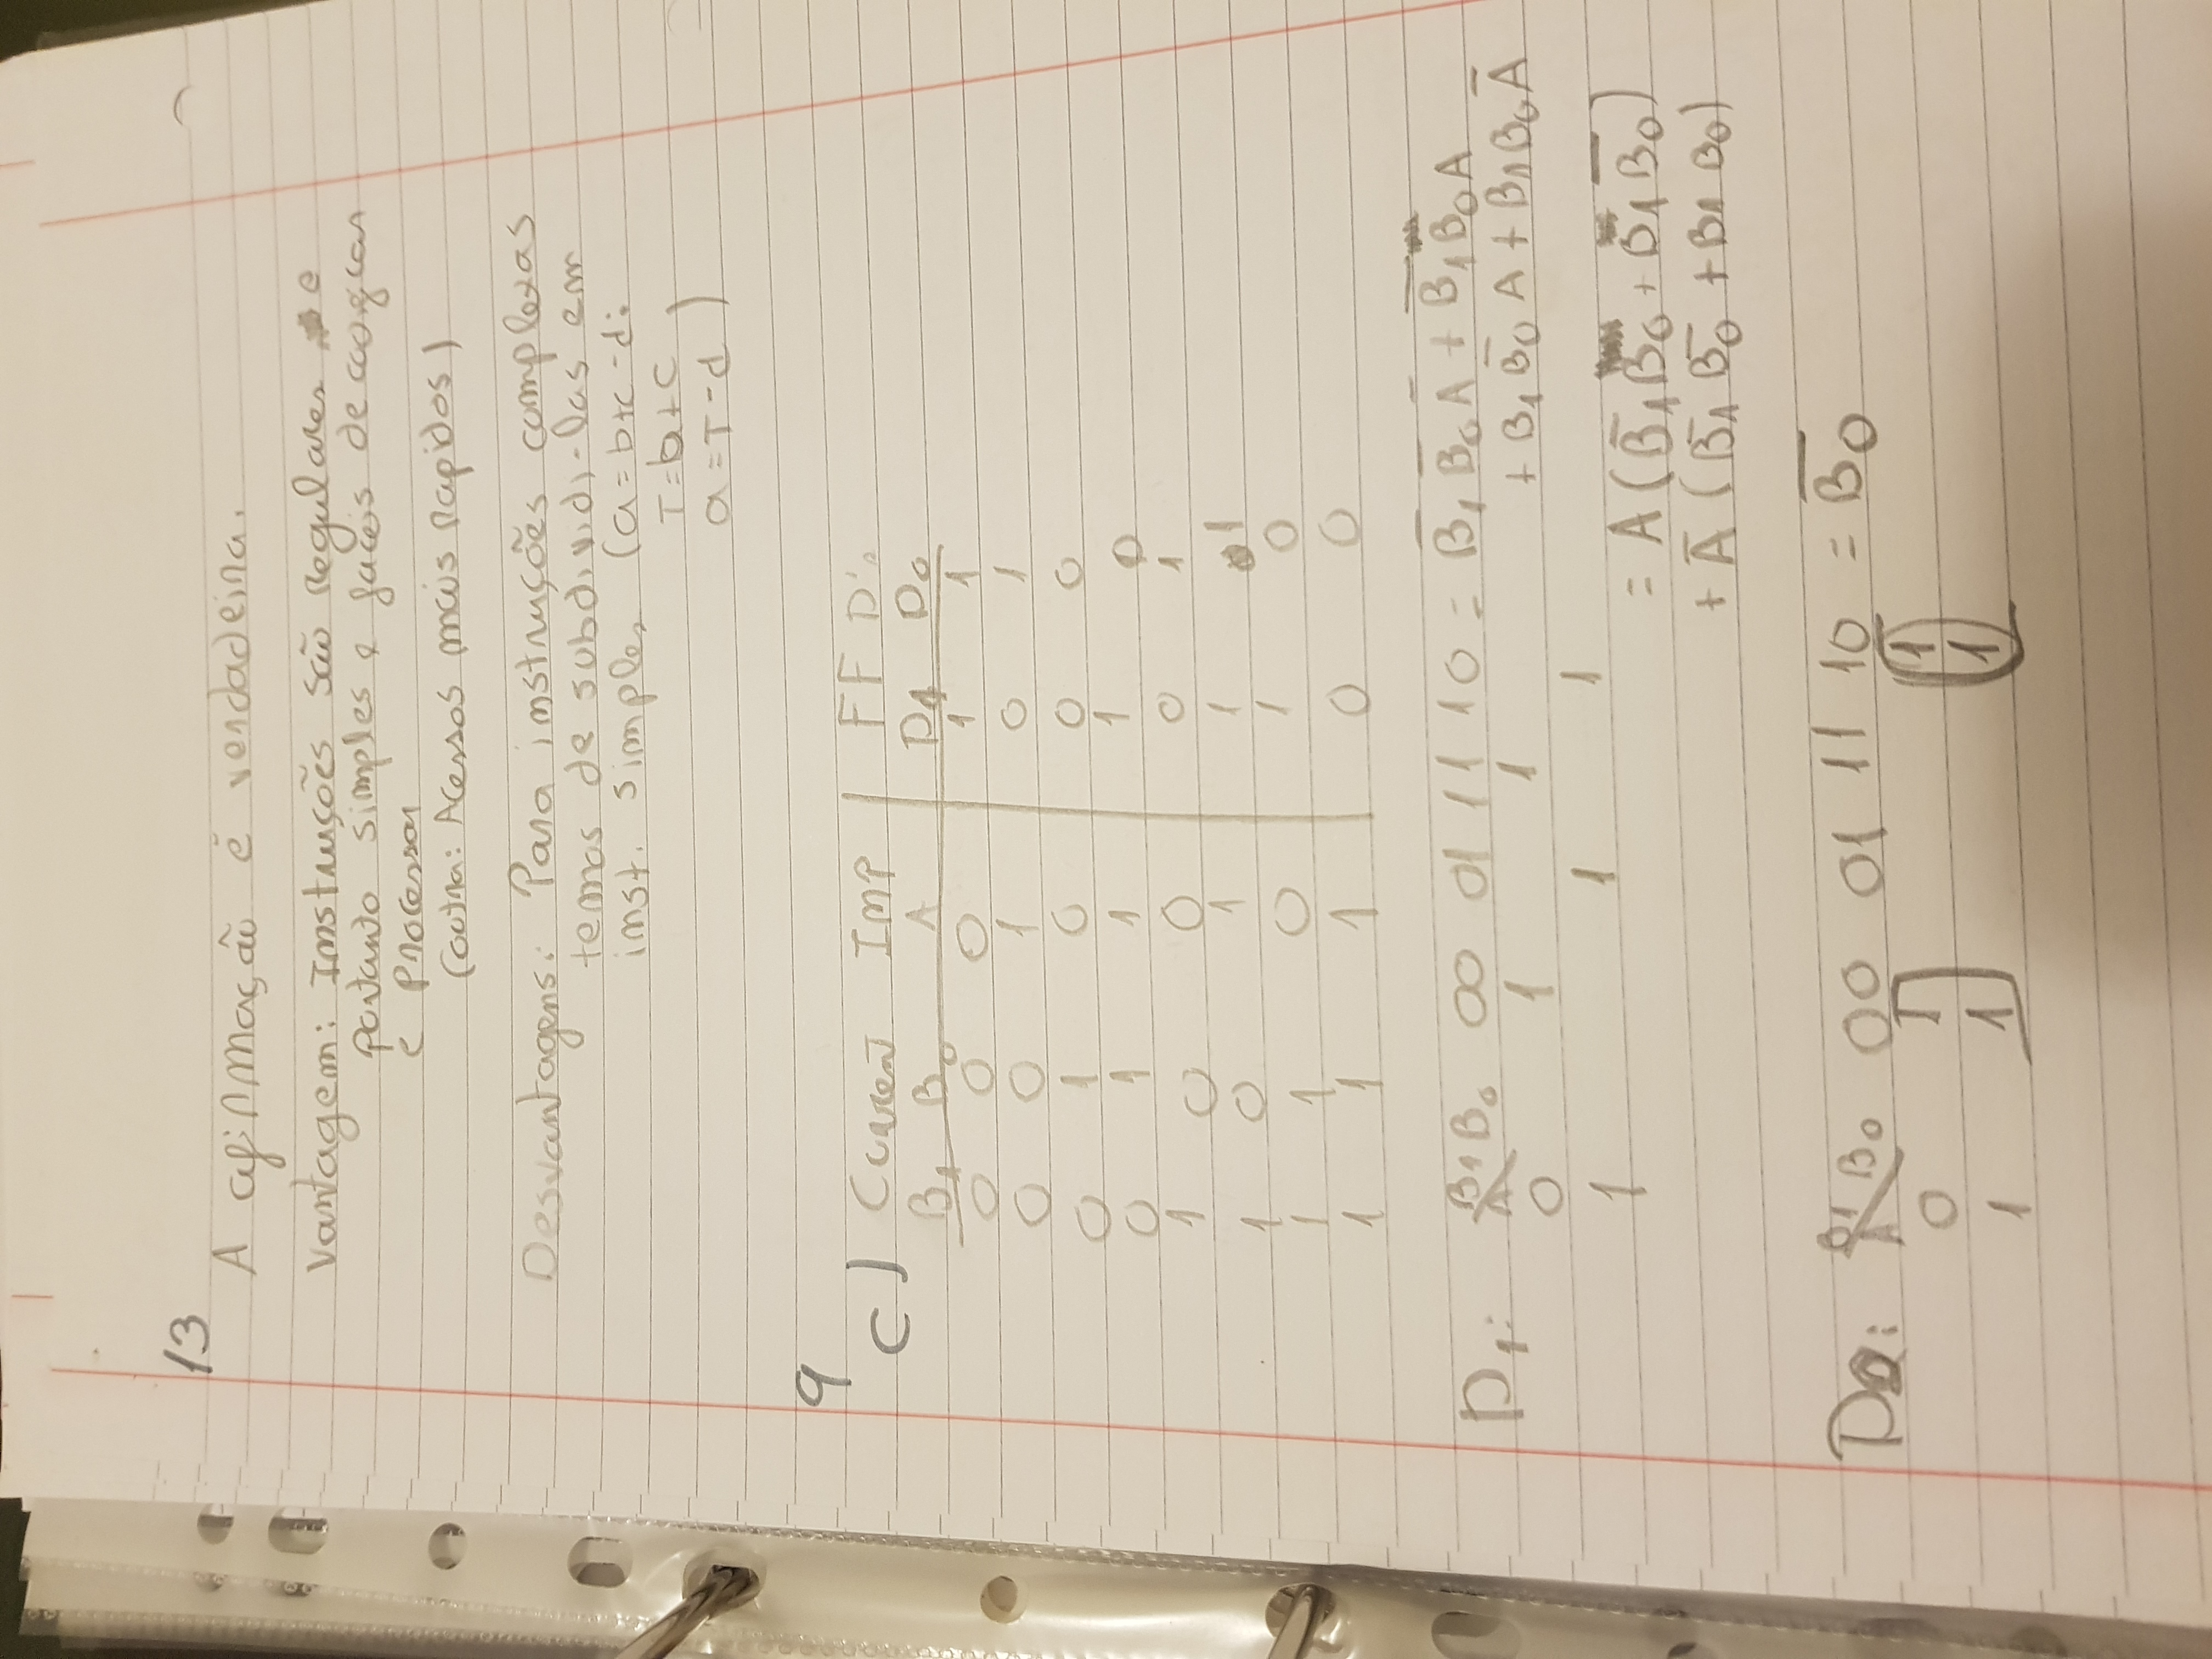 13
A afirmação é verdadeira.
Vantagem: Instruções são regulares e
portanto simples e faceis de
e processar
(outra: Acessos mais rapidos)
Desvantagens: Para instruções complexas
temos de subdividi-las em
inst. simples (a=b+c-d:
T=b+c
a=T-d)
9
c) Current Imp FF D's
B₁ B₀ A D₁ D₀
0 0 0 1 1
0 0 1 0 1
0 1 0 0 0
0 1 1 1 0
1 0 0 0 1
1 0 1 1 1
1 1 0 1 0
1 1 1 0 0
D₁: B₁B₀ 00 01 11 10 = B̅₁ B̅₀ A̅ + B̅₁B₀A
A
0 1 1 + B₁B̅₀ A + B₁B₀A̅
1 1 1
= A(B̅₁B₀ + B₁B̅₀)
+ A̅(B̅₁ B̅₀ + B₁ B₀)
D₀: B₁B₀ 00 01 11 10 = B̅₀
A
0 1 1
1 1 1